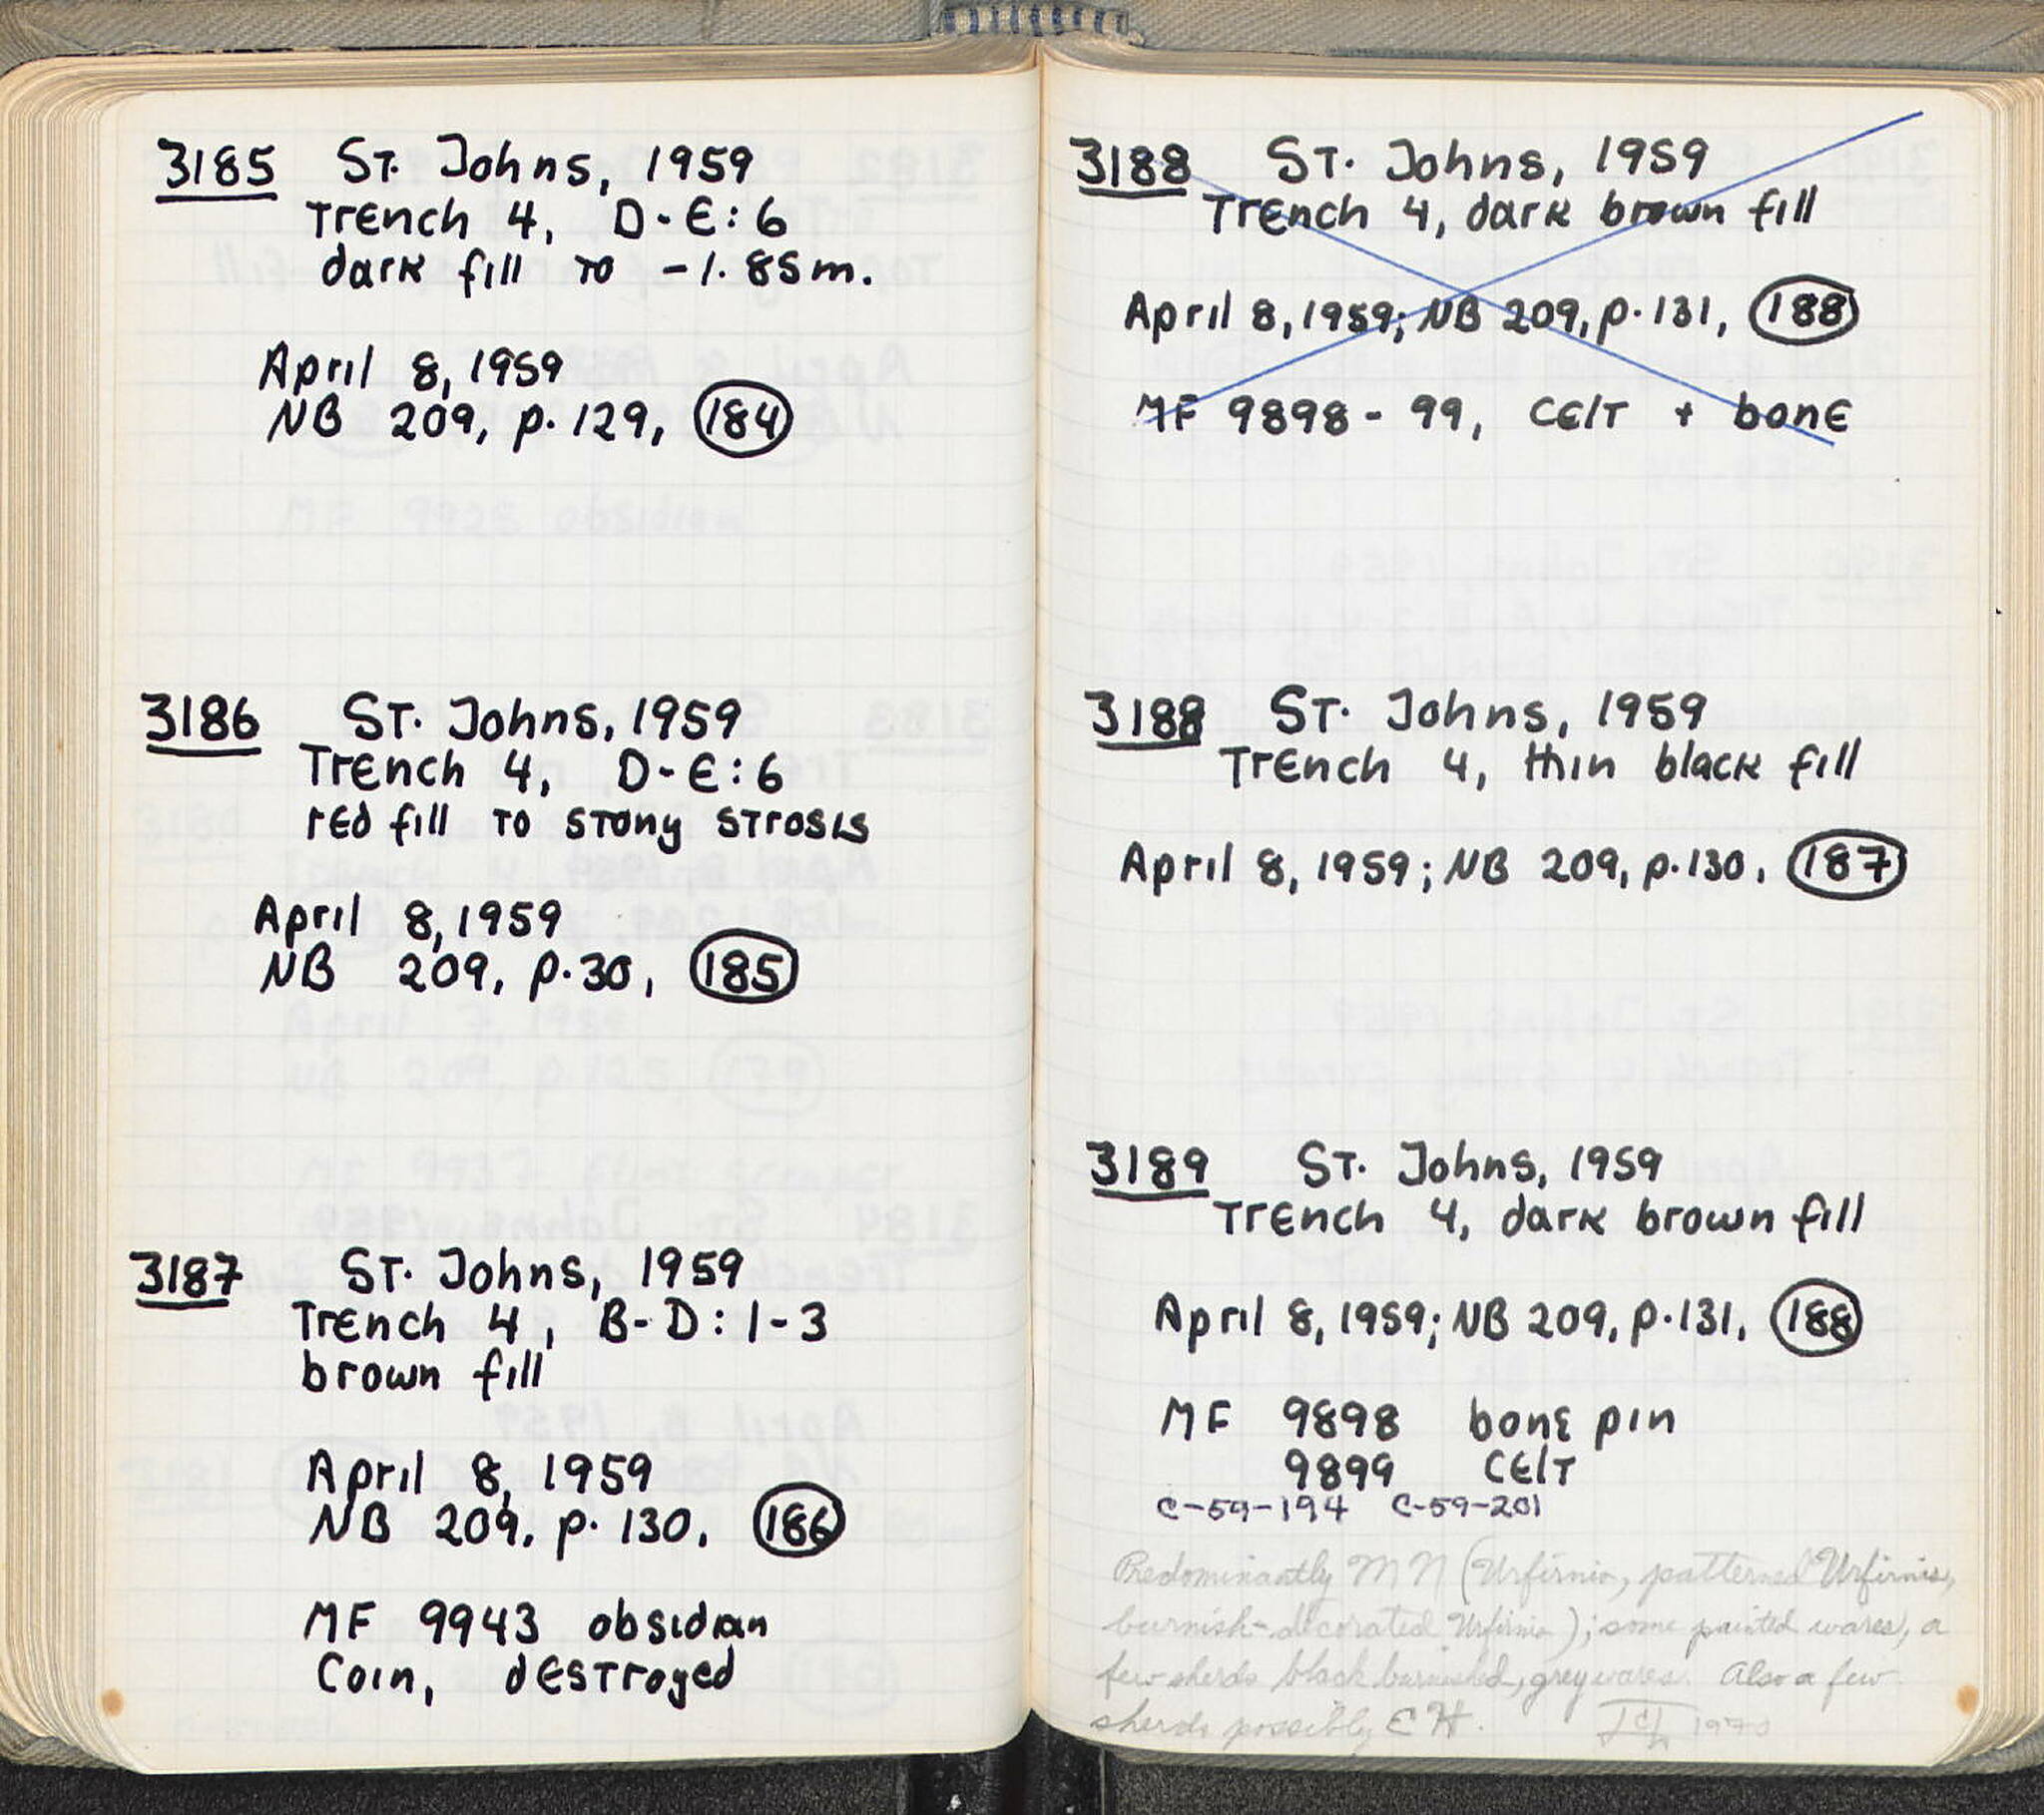 3185 St. Johns, 1959
Trench 4, D-E:6
dark fill to -1.85m.
April 8, 1959
NB 209, p. 129, 184
3186 St. Johns, 1959
Trench 4, D-E:6
red fill to stony strosis
April 8, 1959
NB 209, p. 30, 185
3187 St. Johns, 1959
Trench 4, B-D: 1-3
brown fill
April 8, 1959
NB 209. p. 130. 186
MF 9943 obsidian
Coin, destroyed
3188 St. Johns, 1959
Trench 4, dark brown fill
April 8, 1959; NB 209, p. 131, 188
MF 9898-99, celt + bone
3188 St. Johns, 1959
Trench 4, thin black fill
April 8, 1959; NB 209, p. 130, 187
3189 St. Johns, 1959
Trench 4, dark brown fill
April 8, 1959; NB 209, p. 131, 188
MF 9898 bone pin
9899 celt
C-59-194 C-59-201
Predominantly MN (Urfirnis, patterned Urfirnis,
burnish-decorated Urfirnis); some painted wares, a
few sherds black burnished, grey wares. Also a few
sherds possibly EH. 1970